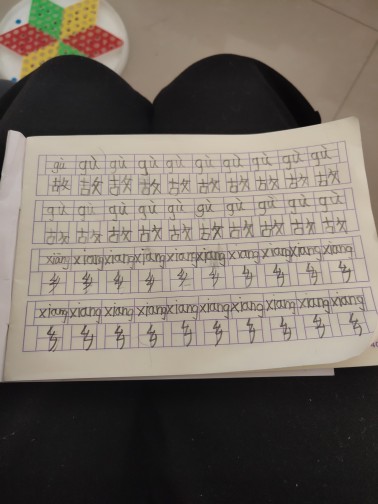 gù gù gù gù gù gù gù gù gù gù
故 故 故 故 故 故 故 故 故 故
gù gù gù gù gù gù gù gù gù gù
故 故 故 故 故 故 故 故 故 故
xiāng xiang xiang xiang xiang xiang xiang xiang xiang xiang
乡 乡 乡 乡 乡 乡 乡 乡 乡 乡
xiang xiang xiang xiang xiang xiang xiang xiang xiang xiang
乡 乡 乡 乡 乡 乡 乡 乡 乡 乡